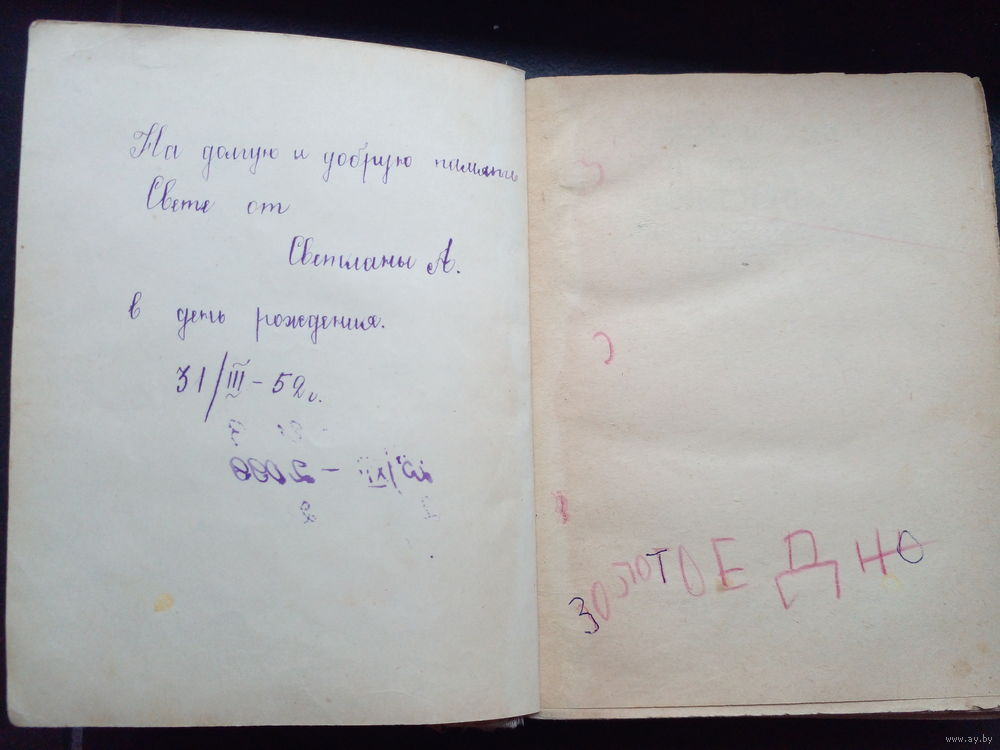 На долгую и добрую память
Свете от
Светланы А.
в день рождения.
31/III - 52 г.
ЗОЛОТОЕ ДНО
www.ay.by